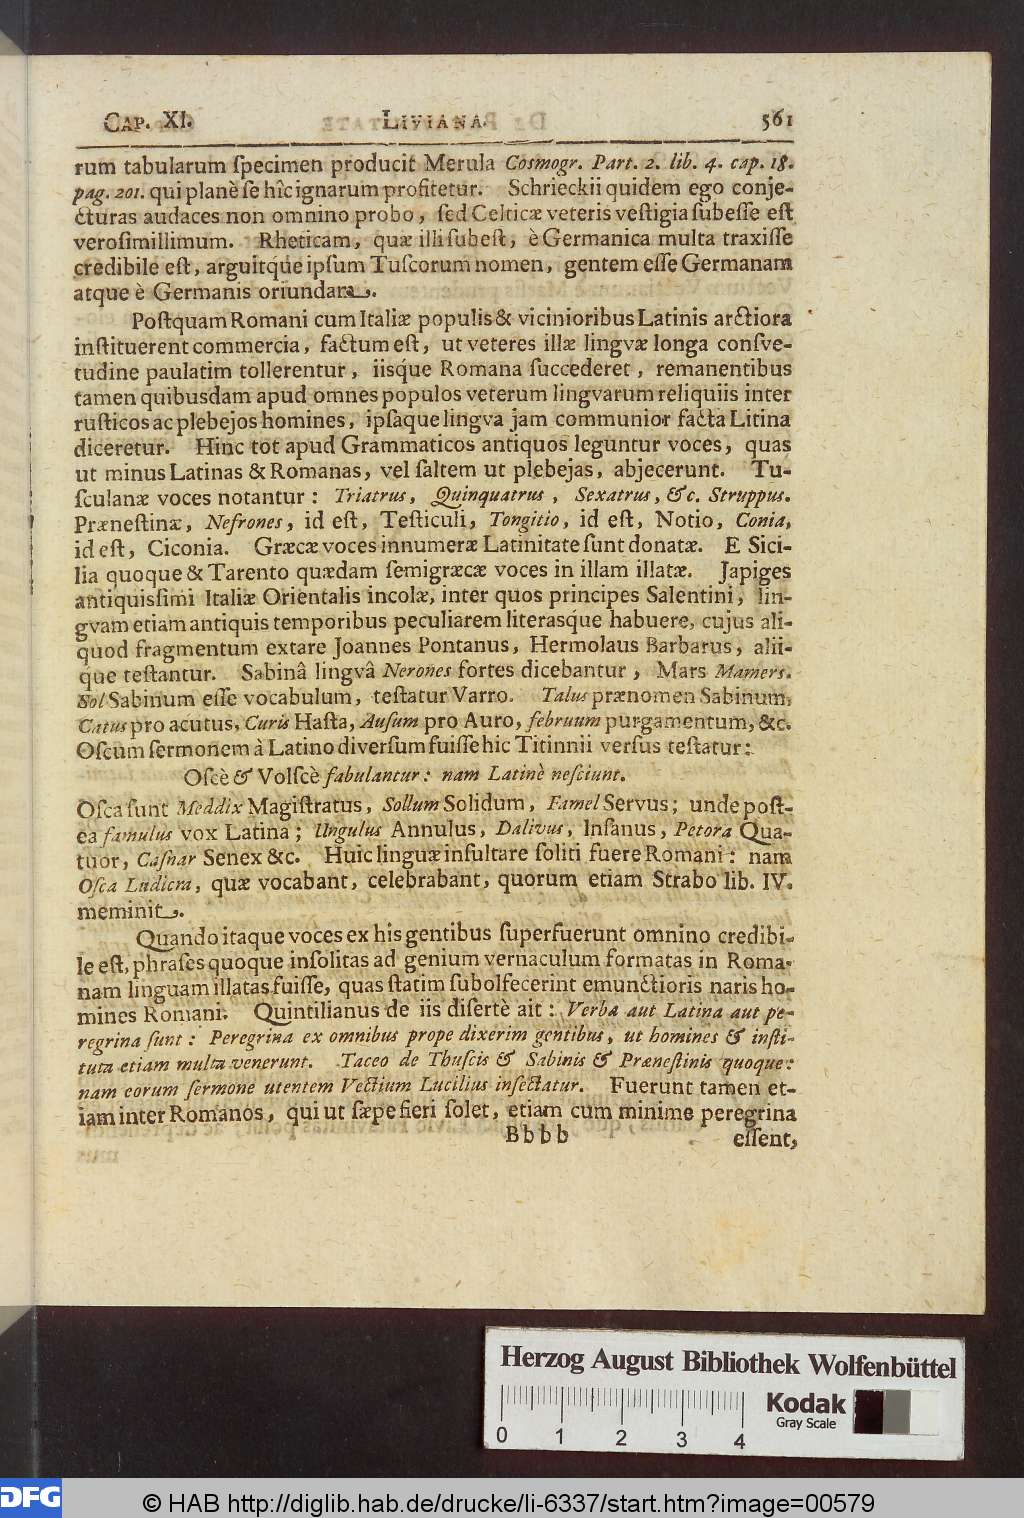 CAP. XI. LIVIANA. 561
rum tabularum ſpecimen producit Merula Cosmogr. Part. 2. lib. 4. cap. 18.
pag. 201. qui planè ſe hîc ignarum profitetur. Schrieckii quidem ego conje-
cturas audaces non omnino probo, ſed Celticæ veteris veſtigia ſubeſſe eſt
veroſimillimum. Rheticam, quæ illi ſubeſt, è Germanica multa traxiſſe
credibile eſt, arguitque ipſum Tuſcorum nomen, gentem eſſe Germanam
atque è Germanis oriundam.
Poſtquam Romani cum Italiæ populis & vicinioribus Latinis arctiora
inſtituerent commercia, factum eſt, ut veteres illæ lingvæ longa conſve-
tudine paulatim tollerentur, iisque Romana ſuccederet, remanentibus
tamen quibusdam apud omnes populos veterum lingvarum reliquiis inter
ruſticos ac plebejos homines, ipſaque lingva jam communior facta Litina
diceretur. Hinc tot apud Grammaticos antiquos leguntur voces, quas
ut minus Latinas & Romanas, vel ſaltem ut plebejas, abjecerunt. Tu-
ſculanæ voces notantur: Triatrus, Quinquatrus, Sexatrus, &c. Struppus.
Præneſtinæ, Nefrones, id eſt, Teſticuli, Tongitio, id eſt, Notio, Conia,
id eſt, Ciconia. Græcæ voces innumeræ Latinitate ſunt donatæ. E Sici-
lia quoque & Tarento quædam ſemigræcæ voces in illam illatæ. Japiges
antiquisſimi Italiæ Orientalis incolæ, inter quos principes Salentini, lin-
gvam etiam antiquis temporibus peculiarem literasque habuere, cujus ali-
quod fragmentum extare Joannes Pontanus, Hermolaus Barbarus, alii-
que teſtantur. Sabinâ lingvâ Nerones fortes dicebantur, Mars Mamers.
Sol Sabinum eſſe vocabulum, teſtatur Varro. Talus prænomen Sabinum,
Catus pro acutus, Curis Haſta, Auſum pro Auro, februum purgamentum, &c.
Oſcum ſermonem à Latino diverſum fuiſſe hic Titinnii verſus teſtatur:
Oſcè & Volſcè fabulantur: nam Latinè neſciunt.
Oſca ſunt Meddix Magiſtratus, Sollum Solidum, Famel Servus; unde poſt-
ea famulus vox Latina; Ungulus Annulus, Dalivus, Inſanus, Petora Qua-
tuor, Caſnar Senex &c. Huic linguæ inſultare ſoliti fuere Romani: nam
Oſca Ludicra, quæ vocabant, celebrabant, quorum etiam Strabo lib. IV.
meminit.
Quando itaque voces ex his gentibus ſuperfuerunt omnino credibi-
le eſt, phraſes quoque inſolitas ad genium vernaculum formatas in Roma-
nam linguam illatas fuiſſe, quas ſtatim ſubolfecerint emunctioris naris ho-
mines Romani. Quintilianus de iis diſertè ait: Verba aut Latina aut pe-
regrina ſunt: Peregrina ex omnibus prope dixerim gentibus, ut homines & inſti-
tuta etiam multa venerunt. Taceo de Thuſcis & Sabinis & Præneſtinis quoque:
nam eorum ſermone utentem Vectium Lucilius inſectatur. Fuerunt tamen et-
iam inter Romanos, qui ut ſæpe fieri ſolet, etiam cum minime peregrina
Bbbb eſſent,
Herzog August Bibliothek Wolfenbüttel
Kodak
Gray Scale
0 1 2 3 4
DFG © HAB http://diglib.hab.de/drucke/li-6337/start.htm?image=00579